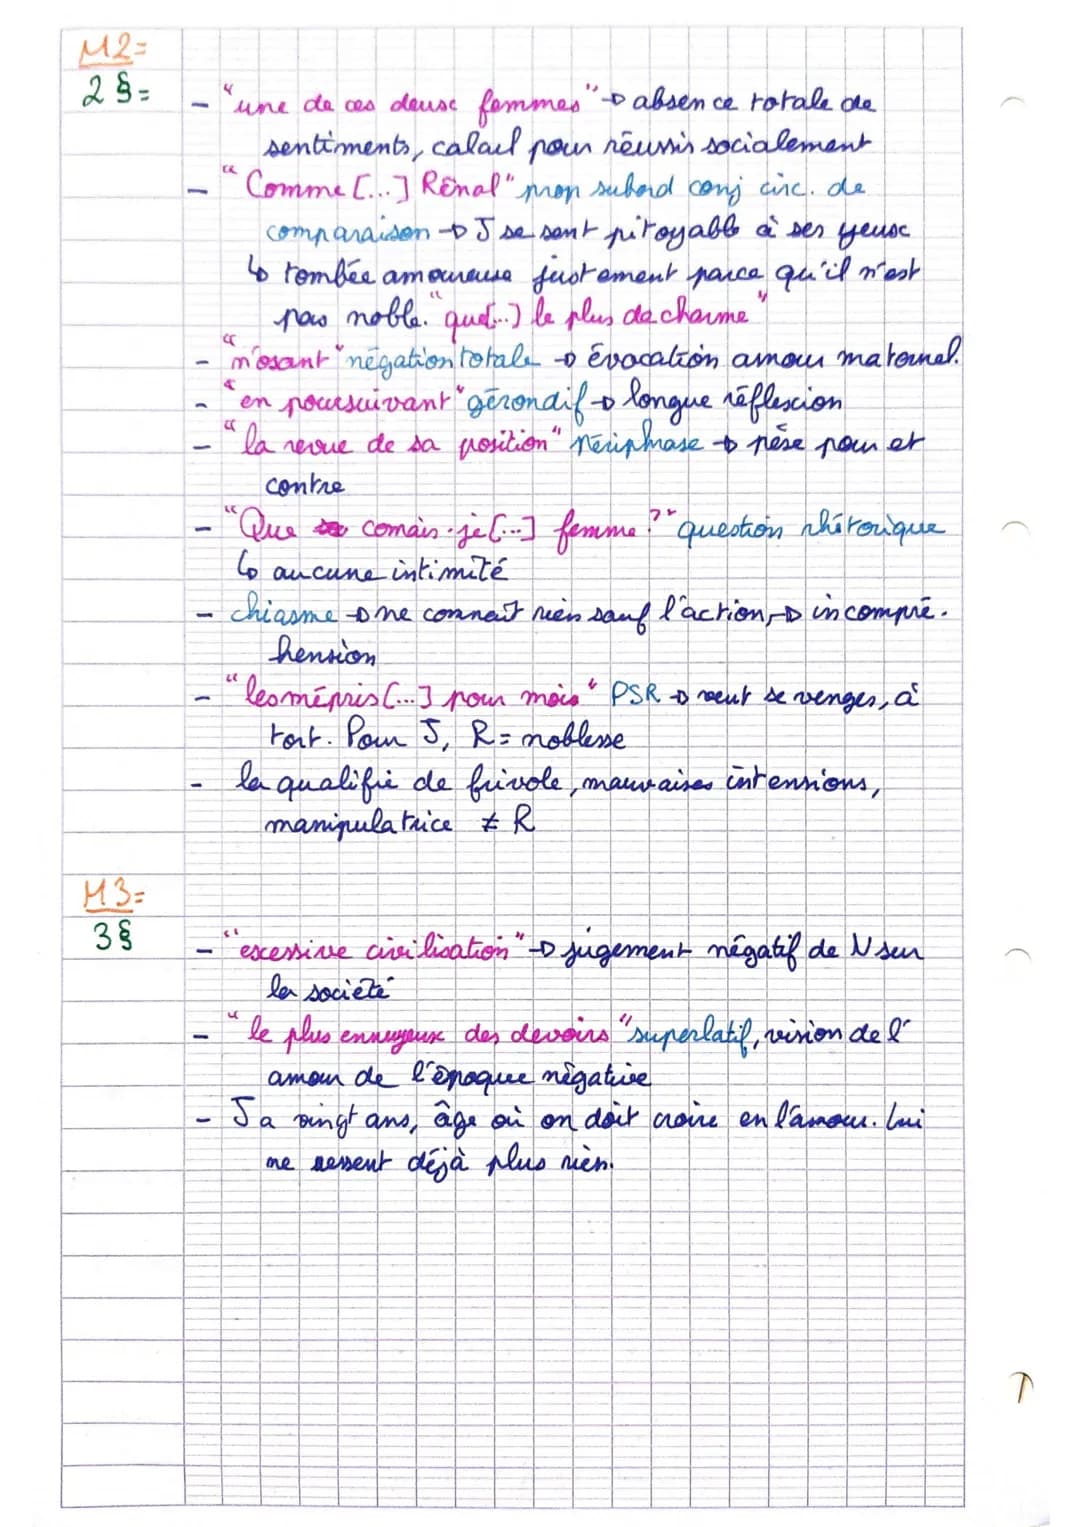 M2=
2 §=
- "une de ces deux femmes" → absence totale de
sentiments, calcul pour réussir socialement
- "Comme [...] Rênal" prop subord conj circ. de
comparaison → J se sent pitoyable à ses yeux
↳ tombée amoureuse justement parce qu'il n'est
pas noble. "que[...] le plus de charme"
- "n'osant" négation totale → évocation amour maternel.
- "en poursuivant" gérondif → longue réflexion
- "la revue de sa position" périphrase → pèse pour et
contre
- "Que comais-je [...] femme?" question rhétorique
↳ aucune intimité
- chiasme → ne connait rien sauf l'action, → incompré-
hension
- "les mépris [...] pour mois" PSR → veut se venger, à
tort. Pour J, R = noblesse
- la qualifie de frivole, mauvaises intensions,
manipulatrice ≠ R
M3=
3§
- "excessive civilisation" → jugement négatif de N sur
la société
- "le plus ennuyeux des devoirs" superlatif, vision de l'
amour de l'époque négative
- J a vingt ans, âge où on doit croire en l'amour. Lui
ne ressent déjà plus rien.